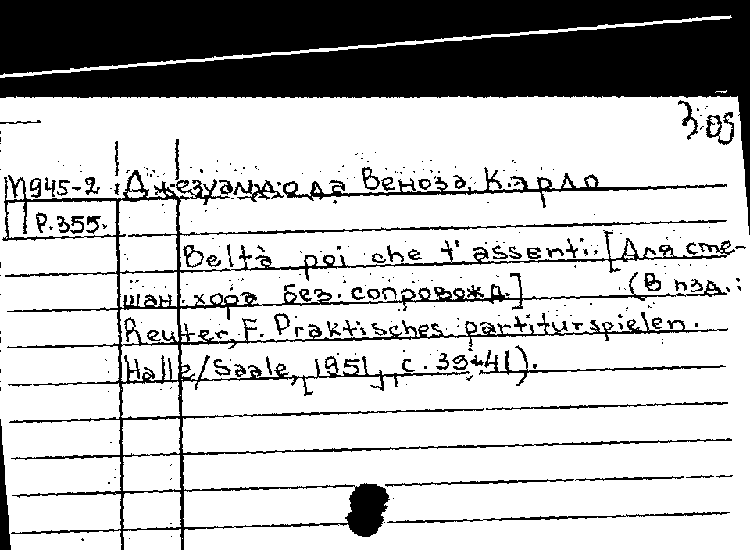 309
М945-2 Джезуальдо да Веноза, Карло
Р.355.
Beltà poi che t'assenti. [Для сме-
шан. хора без. сопровожд.] (В изд.:
Reuter, F. Praktisches partiturspielen.
Halle/Saale, [1951], с. 39-41).